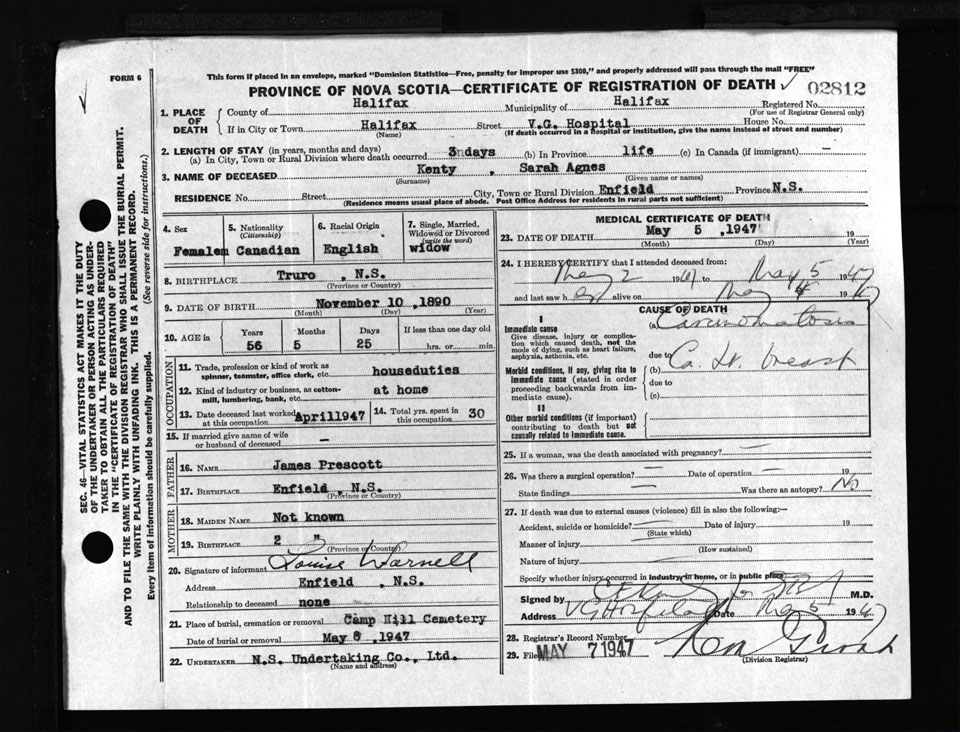 FORM 6
This form if placed in an envelope, marked "Dominion Statistics—Free, penalty for improper use $300," and properly addressed will pass through the mail "FREE"
PROVINCE OF NOVA SCOTIA—CERTIFICATE OF REGISTRATION OF DEATH 02812
1. PLACE OF DEATH
County of Halifax Municipality of Halifax Registered No.
(For use of Registrar General only)
If in City or Town Halifax Street V.G. Hospital House No.
(Name) (If death occurred in a hospital or institution, give the name instead of street and number)
2. LENGTH OF STAY (in years, months and days)
(a) In City, Town or Rural Division where death occurred 3 days (b) In Province life (c) In Canada (if immigrant) —
3. NAME OF DECEASED Kenty , Sarah Agnes
(Surname) (Given name or names)
RESIDENCE No. Street City, Town or Rural Division Enfield Province N.S.
(Residence means usual place of abode. Post Office Address for residents in rural parts not sufficient)
4. Sex 5. Nationality (Citizenship) 6. Racial Origin 7. Single, Married, Widowed or Divorced (write the word)
Female Canadian English widow
8. BIRTHPLACE Truro , N.S.
(Province or Country)
9. DATE OF BIRTH November 10 ,1890
(Month) (Day) (Year)
10. AGE in Years Months Days If less than one day old
56 5 25 hrs. or min.
OCCUPATION
11. Trade, profession or kind of work as spinner, teamster, office clerk, etc. houseduties
12. Kind of industry or business, as cotton-mill, lumbering, bank, etc. at home
13. Date deceased last worked at this occupation April1947 14. Total yrs. spent in this occupation 30
15. If married give name of wife or husband of deceased —
FATHER
16. NAME James Prescott
17. BIRTHPLACE Enfield , N.S.
(Province or Country)
MOTHER
18. MAIDEN NAME Not known
19. BIRTHPLACE 2 "
(Province or Country)
20. Signature of informant Louise Warnell
Address Enfield , N.S.
Relationship to deceased none
21. Place of burial, cremation or removal Camp Hill Cemetery
Date of burial or removal May 8 ,1947
22. UNDERTAKER N.S. Undertaking Co., Ltd.
(Name and address)
MEDICAL CERTIFICATE OF DEATH
23. DATE OF DEATH May 5 ,1947 19
(Month) (Day) (Year)
24. I HEREBY CERTIFY that I attended deceased from:
May 2 1947 to May 5 1947
and last saw her alive on May 4 1947
CAUSE OF DEATH
I
Immediate cause
Give disease, injury or complication which caused death, not the mode of dying, such as heart failure, asphyxia, asthenia, etc.
(a) Carcinomatosis
due to
Morbid conditions, if any, giving rise to immediate cause (stated in order proceeding backwards from immediate cause).
(b) Ca. lt. breast
due to
(c)
II
Other morbid conditions (if important) contributing to death but not causally related to immediate cause.
25. If a woman, was the death associated with pregnancy? —
26. Was there a surgical operation? — Date of operation — 19
State findings — Was there an autopsy? No
27. If death was due to external causes (violence) fill in also the following:—
Accident, suicide or homicide? Date of injury 19
(State which)
Manner of injury
(How sustained)
Nature of injury
Specify whether injury occurred in industry, in home, or in public place
Signed by M.D.
Address VG Hospital Date May 5 1947
28. Registrar's Record Number
29. Filed MAY 7 1947
(Division Registrar)
SEC. 46—VITAL STATISTICS ACT MAKES IT THE DUTY
OF THE UNDERTAKER OR PERSON ACTING AS UNDER-
TAKER TO OBTAIN ALL THE PARTICULARS REQUIRED
IN THE "CERTIFICATE OF REGISTRATION OF DEATH"
AND TO FILE THE SAME WITH THE DIVISION REGISTRAR WHO SHALL ISSUE THE BURIAL PERMIT.
WRITE PLAINLY WITH UNFADING INK. THIS IS A PERMANENT RECORD.
Every item of information should be carefully supplied. (See reverse side for instructions.)